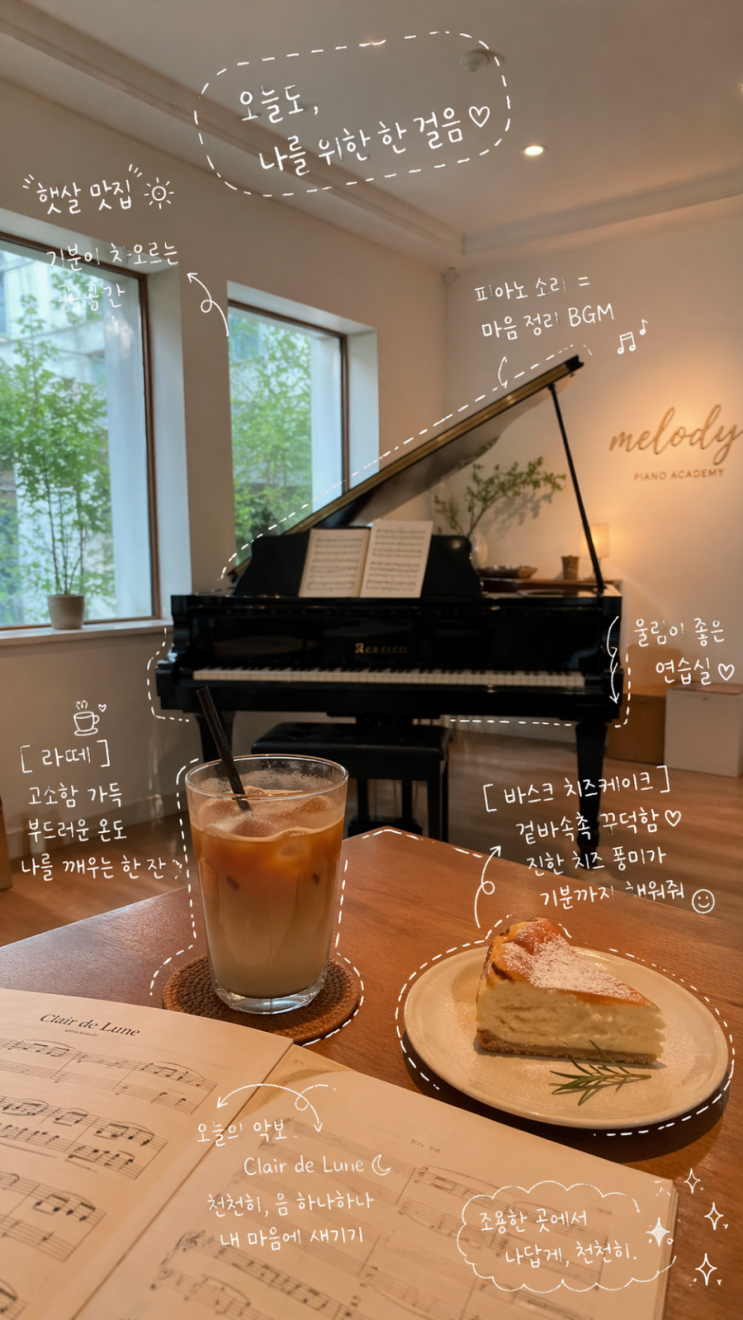 오늘도,
나를 위한 한 걸음♡
"햇살 맛집"
기분이 차오르는
공간
피아노 소리 =
마음 정리 BGM
melody
PIANO ACADEMY
울림이 좋은
연습실♡
[ 라떼 ]
고소함 가득
부드러운 온도
나를 깨우는 한 잔
[ 바스크 치즈케이크 ]
겉바속촉 꾸덕함♡
진한 치즈 풍미가
기분까지 채워줘
Clair de Lune
오늘의 악보
Clair de Lune
천천히, 음 하나하나
내 마음에 새기기
조용한 곳에서
나답게, 천천히.